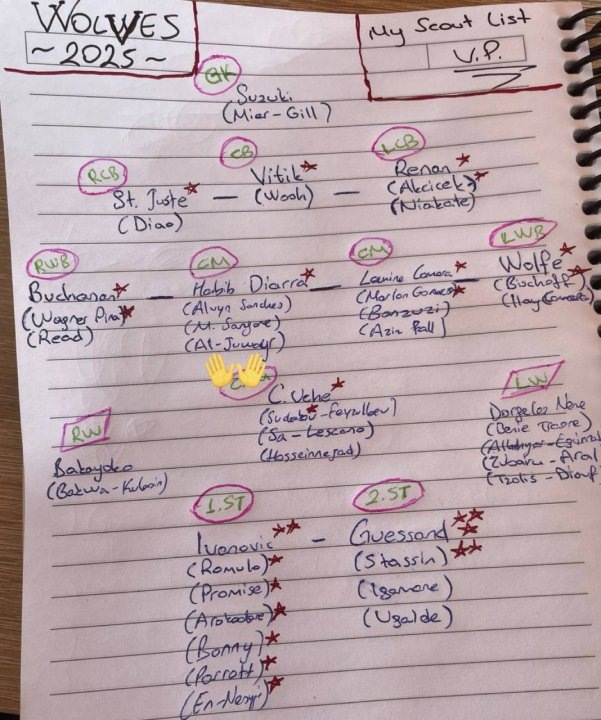 WOLVES
~ 2025 ~
My Scout List
V.P.
GK
Suzuki
(Mier-Gill)
RCB
CB
LCB
St. Juste
Vitik
Renan
(Diao)
(Wooh)
(Akcicek)
(Niakate)
RWB
CM
CM
LWB
Buchanan
Habib Diarra
Lamine Camara
Wolfe
(Wagner Pina)
(Alvyn Sanches)
(Marlon Gomes)
(Bischoff)
(Read)
(M. Sangare)
(Banzuzi)
(Hay Camara)
(Al-Juwayr)
(Aziz Fall)
C.Uche
(Sa-Lescano)
(Hosseinnejad)
RW
Bakayoko
(Bakwa-
LW
Dorgeles Nene
(Zubaru-Aral
(Tzolis-Diouf)
1.ST
2.ST
Ivanovic
Guessand
(Romulo)
(Stassin)
(Promise)
(Igamane)
(Arokodare)
(Ugalde)
(Bonny)
(Parrott)
(En-Nesyri)